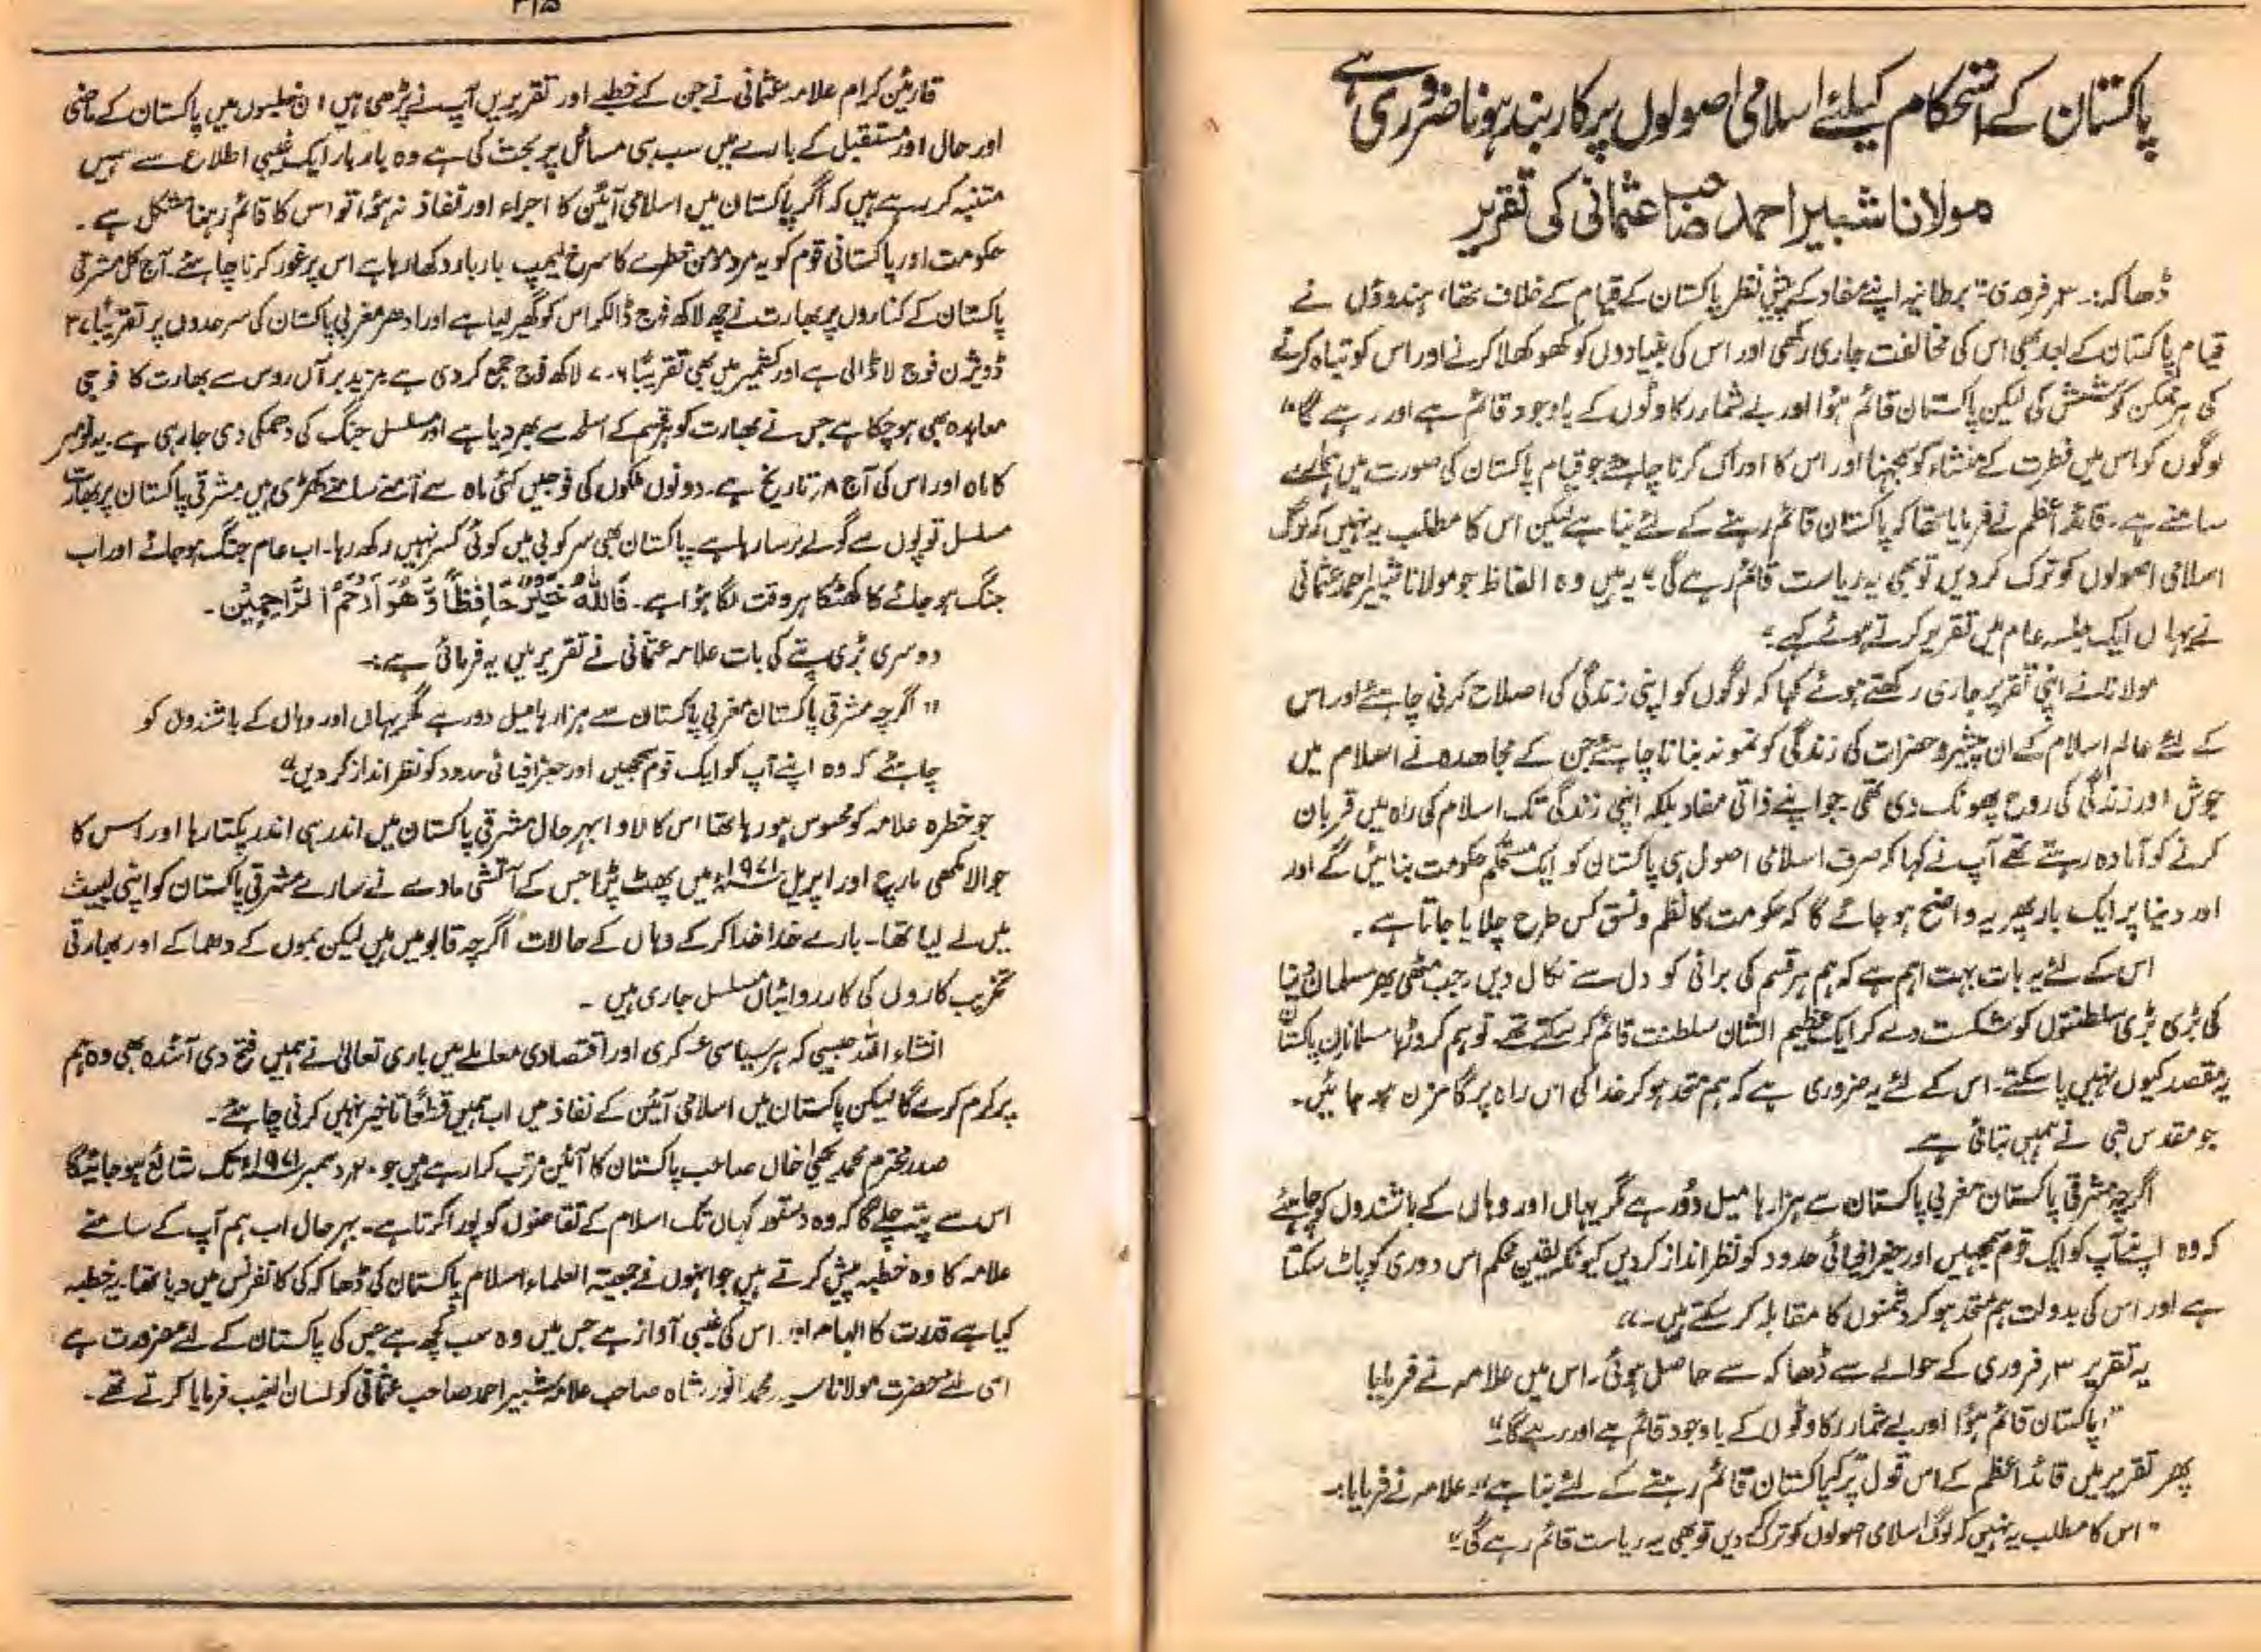 پاکستان کے استحکام کیلئے اسلامی اصولوں پر کاربند ہونا ضروری ہے
مولانا شبیر احمد صاحب عثمانی کی تقریر
ڈھاکہ:۔ ۳؍ فروری:۔ برطانیہ اپنے مفاد کے پیش نظر پاکستان کے قیام کے خلاف تھا، ہندوؤں نے
قیام پاکستان کے بعد بھی اس کی مخالفت جاری رکھی اور اس کی بنیادوں کو کھوکھلا کرنے اور اس کو تباہ کرنے
کی ہر ممکن کوشش کی لیکن پاکستان قائم ہؤا اور بے شمار رکاوٹوں کے باوجود قائم ہے اور رہے گا"
لوگوں کو اس میں فطرت کے منشاء کو سمجھنا اور اس کا ادراک کرنا چاہیے جو قیام پاکستان کی صورت میں ہمارے
سامنے ہے۔ قائد اعظم نے فرمایا تھا کہ پاکستان قائم رہنے کے لئے بنا ہے لیکن اس کا مطلب یہ نہیں کہ لوگ
اسلامی اصولوں کو ترک کر دیں تو بھی یہ ریاست قائم رہے گی" یہ ہیں وہ الفاظ جو مولانا شبیر احمد عثمانی
نے یہاں ایک جلسہ عام میں تقریر کرتے ہوئے کہے۔
مولانا نے اپنی تقریر جاری رکھتے ہوئے کہا کہ لوگوں کو اپنی زندگی کی اصلاح کرنی چاہئے اور اس
کے لئے عالم اسلام کے ان پیشرو حضرات کی زندگی کو نمونہ بنانا چاہئے جن کے مجاہدہ نے اسلام میں
جوش اور زندگی کی روح پھونک دی تھی جو اپنے ذاتی مفاد بلکہ اپنی زندگی تک اسلام کی راہ میں قربان
کرنے کو آمادہ رہتے تھے آپ نے کہا کہ صرف اسلامی اصول ہی پاکستان کو ایک مستحکم حکومت بنائیں گے اور
اور دنیا پر ایک بار پھر یہ واضح ہو جائے گا کہ حکومت کا نظم و نسق کس طرح چلایا جاتا ہے۔
اس کے لئے یہ بات بہت اہم ہے کہ ہم ہر قسم کی برائی کو دل سے نکال دیں۔ جب مٹھی بھر مسلمان دنیا
کی بڑی بڑی سلطنتوں کو شکست دے کر ایک عظیم الشان سلطنت قائم کر سکتے تھے۔ تو ہم کروڑہا مسلمانان پاکستان
یہ مقصد کیوں نہیں پا سکتے۔ اس کے لئے یہ ضروری ہے کہ ہم متحد ہو کر خدا کی اس راہ پر گامزن ہو جائیں۔
جو مقدس نبی نے ہمیں بتائی ہے
اگرچہ مشرقی پاکستان مغربی پاکستان سے ہزارہا میل دور ہے مگر یہاں اور وہاں کے باشندوں کو چاہئے
کہ وہ اپنے آپ کو ایک قوم سمجھیں اور جغرافیائی حدود کو نظر انداز کر دیں کیونکہ یقین محکم اس دوری کو پاٹ سکتا
ہے اور اس کی بدولت ہم متحد ہو کر دشمنوں کا مقابلہ کر سکتے ہیں۔"
یہ تقریر ۳؍ فروری کے حوالے سے ڈھاکہ سے حاصل ہوئی۔ اس میں علامہ نے فرمایا
"پاکستان قائم ہؤا اور بے شمار رکاوٹوں کے باوجود قائم ہے اور رہے گا"
پھر تقریر میں قائد اعظم کے اس قول پر کہ پاکستان قائم رہنے کے لئے بنا ہے" علامہ نے فرمایا:۔
"اس کا مطلب یہ نہیں کہ لوگ اسلامی اصولوں کو ترک کر دیں تو بھی یہ ریاست قائم رہے گی"
قارئین کرام علامہ عثمانی نے جن کے خطبے اور تقریریں آپ نے پڑھی ہیں ان خطبوں میں پاکستان کے ماضی
اور حال اور مستقبل کے بارے میں سب ہی مسائل پر بحث کی ہے وہ بار بار ایک غیبی اطلاع سے ہمیں
متنبہ کر رہے ہیں کہ اگر پاکستان میں اسلامی آئین کا اجراء اور نفاذ نہ ہؤا تو اس کا قائم رہنا مشکل ہے۔
حکومت اور پاکستانی قوم کو یہ مرد مومن خطرے کا سرخ لیمپ بار بار دکھا رہا ہے اس پر غور کرنا چاہئے۔ آج کل مشرقی
پاکستان کے کناروں پر بھارت نے چھ لاکھ فوج ڈال کر اس کو گھیر لیا ہے اور ادھر مغربی پاکستان کی سرحدوں پر تقریباً
ڈویژن فوج لا ڈالی ہے اور کشمیر میں بھی تقریباً ۶۔۷ لاکھ فوج جمع کر دی ہے مزید برآں روس سے بھارت کا فوجی
معاہدہ بھی ہو چکا ہے جس نے بھارت کو ہر قسم کے اسلحہ سے بھر دیا ہے اور مسلسل جنگ کی دھمکی دی جا رہی ہے۔ یہ نومبر
کا ماہ اور اس کی آج ۸؍ تاریخ ہے۔ دونوں ملکوں کی فوجیں کئی ماہ سے آمنے سامنے کھڑی ہیں مشرقی پاکستان پر بھارت
مسلسل توپوں سے گولے برسا رہا ہے۔ پاکستان بھی سرکوبی میں کوئی کسر نہیں رکھ رہا۔ اب عام جنگ ہو جائے اور اب
جنگ ہو جائے کا کھٹکا ہر وقت لگا ہؤا ہے۔ فَاللّٰهُ خَيْرٌ حَافِظًا وَّهُوَ اَرْحَمُ الرَّاحِمِيْنَ۔
دوسری بڑی پتے کی بات علامہ عثمانی نے تقریر میں یہ فرمائی ہے:۔
"اگرچہ مشرقی پاکستان مغربی پاکستان سے ہزارہا میل دور ہے مگر یہاں اور وہاں کے باشندوں کو
چاہئے کہ وہ اپنے آپ کو ایک قوم سمجھیں اور جغرافیائی حدود کو نظر انداز کر دیں"
جو خطرہ علامہ کو محسوس ہو رہا تھا اس کا لاوا بہر حال مشرقی پاکستان میں اندر ہی اندر پکتا رہا اور اس کا
جوالا مکھی مارچ اور اپریل ۱۹۷۱ء میں پھٹ پڑا جس کے آتشی مادے نے سارے مشرقی پاکستان کو اپنی لپیٹ
میں لے لیا تھا۔ بارے خدا خدا کر کے وہاں کے حالات اگرچہ قابو میں ہیں لیکن بموں کے دھماکے اور بھارتی
تخریب کاروں کی کارروائیاں مسلسل جاری ہیں۔
انشاء اللہ جیسی کہ ہر سیاسی عسکری اور اقتصادی معاملے میں باری تعالیٰ نے ہمیں فتح دی آئندہ بھی وہ ہم
پر کرم کرے گا لیکن پاکستان میں اسلامی آئین کے نفاذ میں اب ہمیں قطعاً تاخیر نہیں کرنی چاہئے۔
صدر محترم محمد یحییٰ خاں صاحب پاکستان کا آئین مرتب کرا رہے ہیں جو ۲۰؍ دسمبر ۱۹۷۱ء تک شائع ہو جائیگا
اس سے پتہ چلے گا کہ وہ دستور کہاں تک اسلام کے تقاضوں کو پورا کرتا ہے۔ بہر حال اب ہم آپ کے سامنے
علامہ کا وہ خطبہ پیش کرتے ہیں جو انہوں نے جمعیۃ العلماء اسلام پاکستان کی ڈھاکہ کی کانفرنس میں دیا تھا۔ یہ خطبہ
کیا ہے قدرت کا الہام اور اس کی غیبی آواز ہے جس میں وہ سب کچھ ہے جس کی پاکستان کے لئے ضرورت ہے
اسی لئے حضرت مولانا سید محمد انور شاہ صاحب علامہ شبیر احمد صاحب عثمانی کو لسان الغیب فرمایا کرتے تھے۔